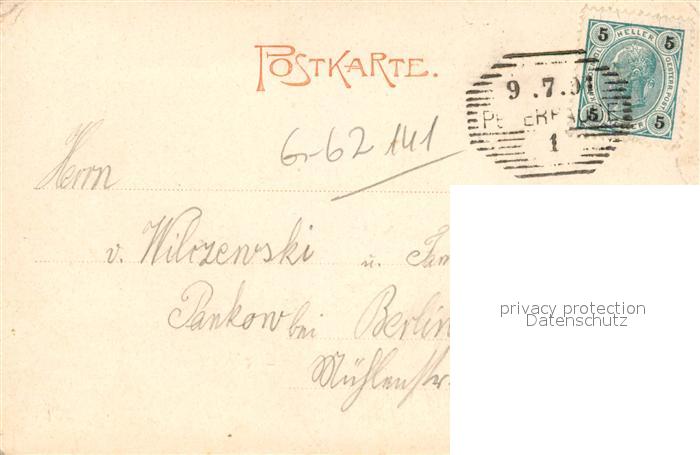 POSTKARTE.
5 HELLER 5
5 5
9.7.0
1
Gr-62 141
Herrn
v. Wilczewski u. Fam
Pankow bei Berlin
Mühlenstr.
privacy protection
Datenschutz